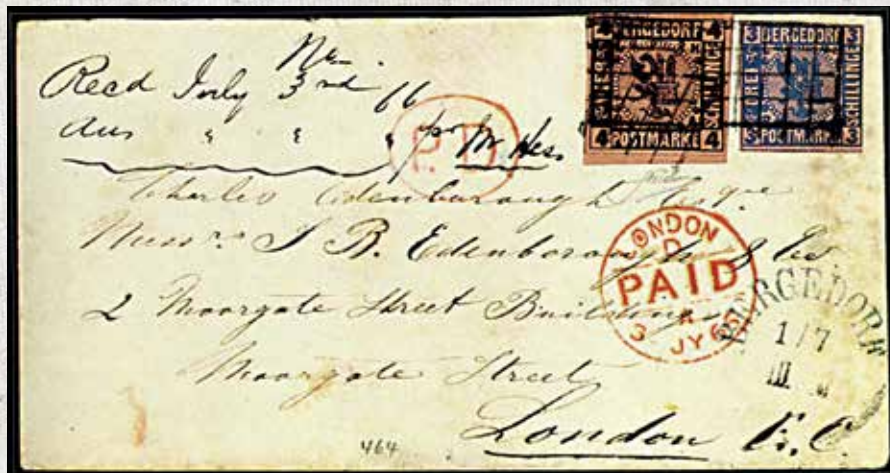 Recd July 3rd 66
Ans " " " pr Mr Hes.
P.D
4 BERGEDORF 4
SCHILLINGE
4 POSTMARKE 4
3 BERGEDORF 3
DREI
SCHILLINGE
3 POSTMARKE 3
Charles Edenborough Esqre
Messrs S B. Edenborough & Co
2 Moorgate Street Buildings
Moorgate Street
London E.C.
LONDON
D
PAID
3 JY 6
BERGEDORF
1/7
III
464